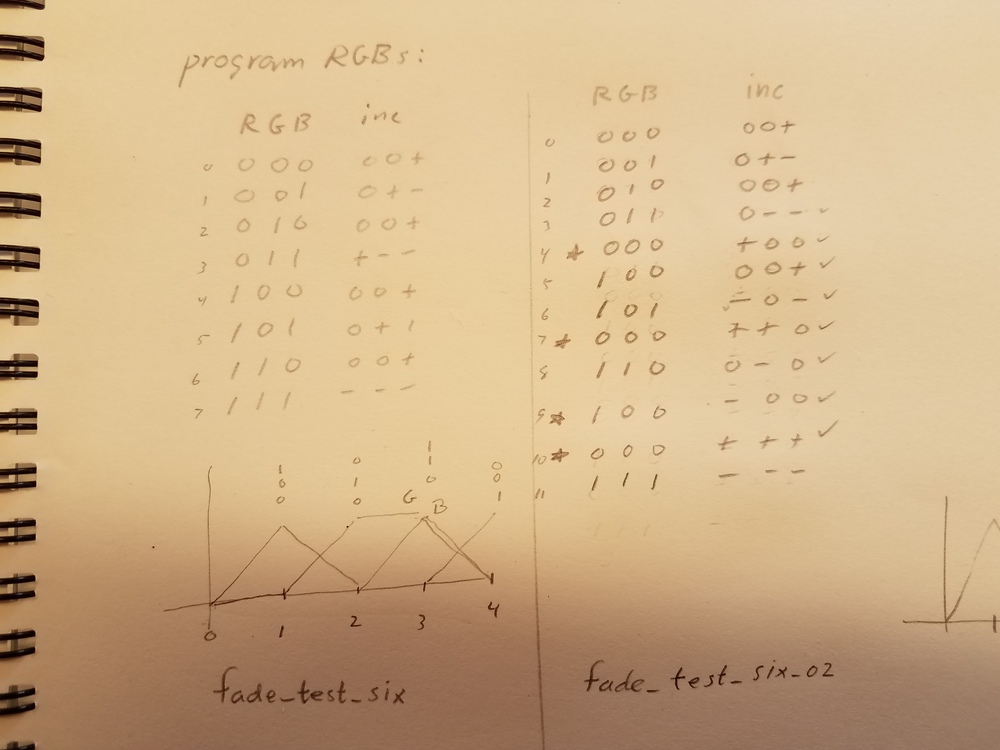 program RGBs:
RGB inc
0 000 00+
1 001 0+-
2 010 00+
3 011 +--
4 100 00+
5 101 0+-
6 110 00+
7 111 ---
1 0 11
0 1 0 00
0 0 G 1
B
0 1 2 3 4
fade_test_six
RGB inc
0 000 00+
1 001 0+-
2 010 00+
3 011 0-- ✓
4 * 000 +00 ✓
5 100 00+ ✓
6 101 -0- ✓
7 * 000 ++0 ✓
8 110 0-0 ✓
9 * 100 -00 ✓
10 * 000 +++ ✓
11 111 ---
fade_test_six_02
1